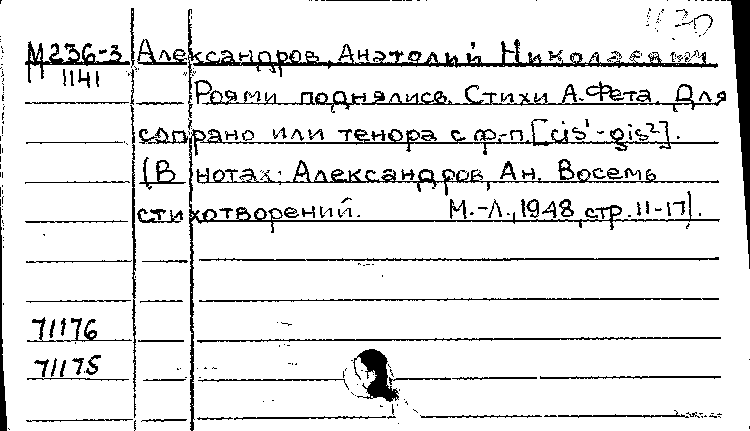 1120
М236-3 Александров, Анатолий Николаевич
1141
Роями поднялись. Стихи А.Фета. Для
сопрано или тенора с ф.-п. [cis¹-gis²].
(В нотах: Александров, Ан. Восемь
стихотворений. М.-Л., 1948, стр. 11-17).
71176
71175